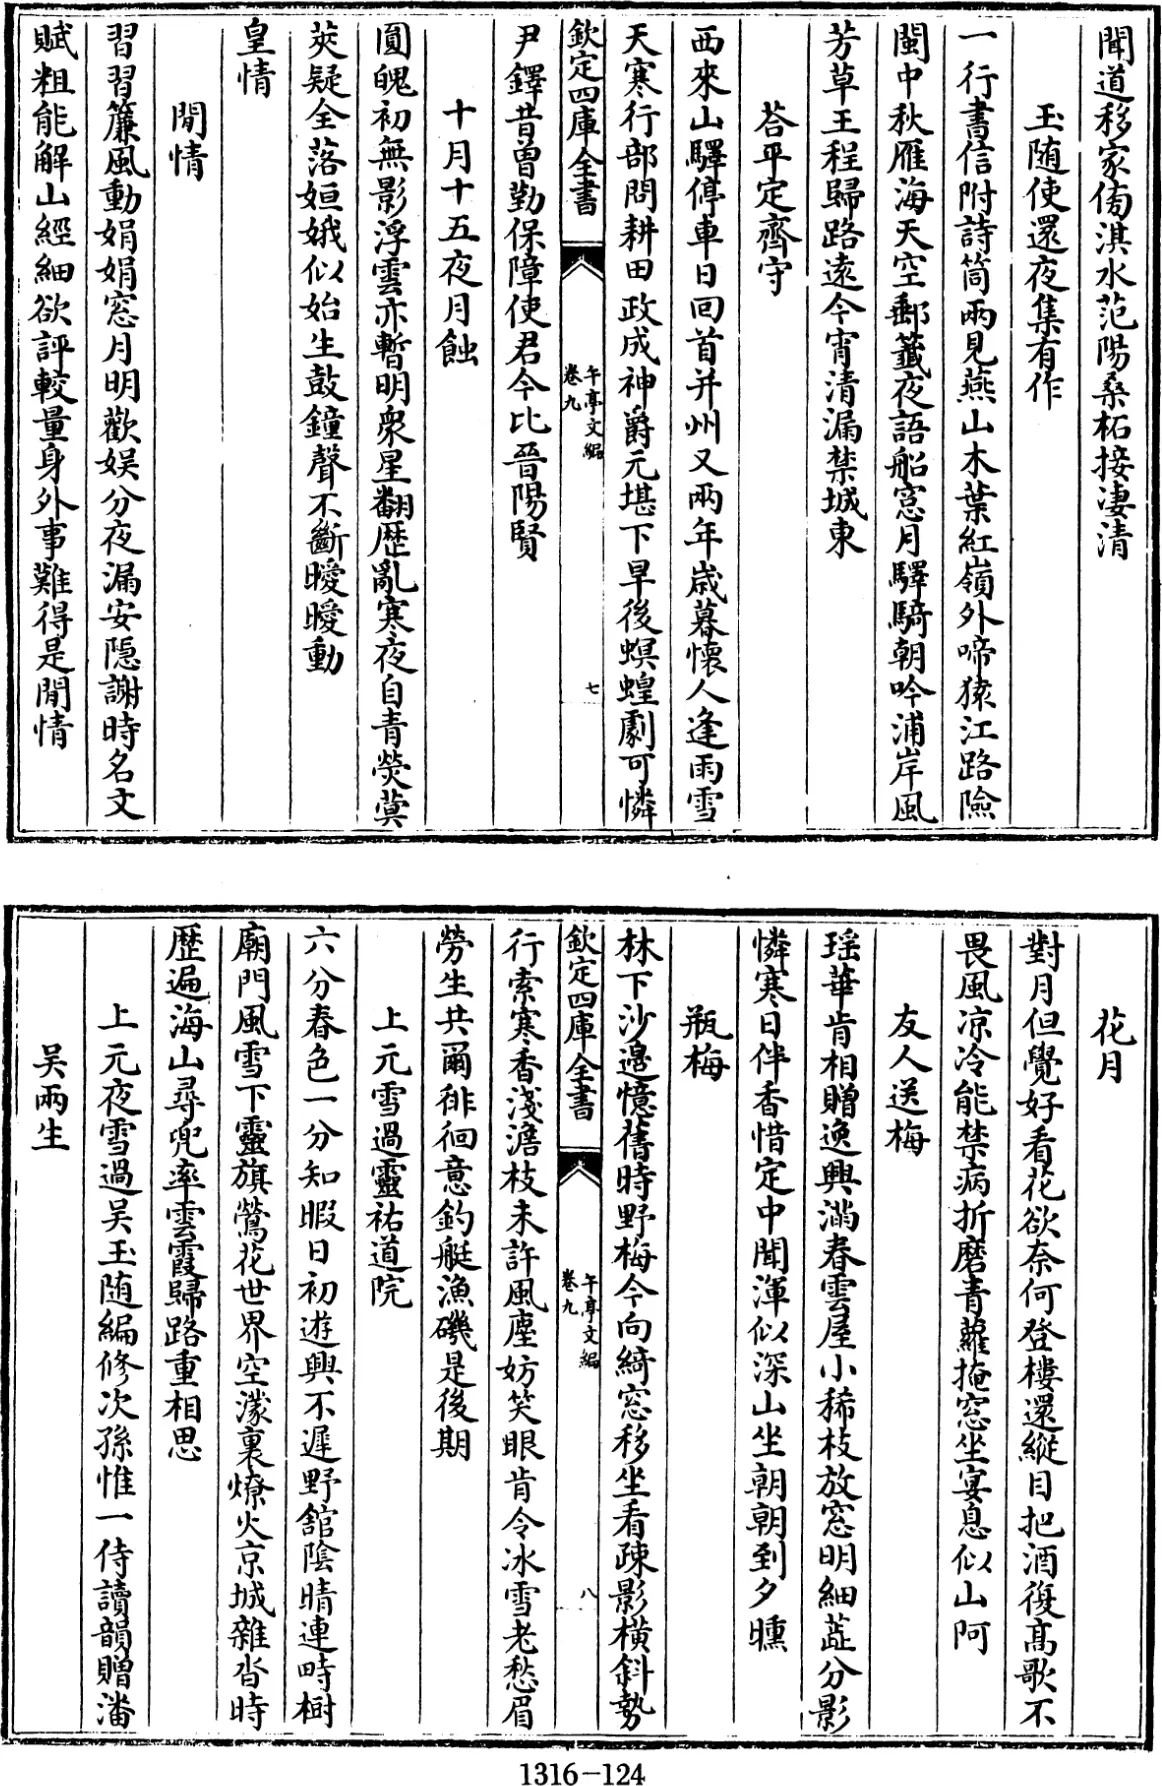 聞道移家傍淇水范陽桑柘接凄清
玉随使還夜集有作
一行書信附詩筒兩見燕山木葉紅嶺外啼猿江路險
閩中秋雁海天空郵籖夜語船窓月驛騎朝吟浦岸風
芳草王程歸路遠今宵清漏禁城東
荅平定齊守
西來山驛停車日回首并州又兩年歲暮懐人逢雨雪
天寒行部問耕田政成神爵元堪下旱後螟蝗劇可憐
欽定四庫全書
午亭文編
卷九
七
尹鐸昔曾勤保障使君今比晉陽賢
十月十五夜月蝕
圎魄初無影浮雲亦暫明衆星翻歷亂寒夜自青熒蓂
莢疑全落姮娥似始生鼓鐘聲不斷曖曖動
皇情
閒情
習習簾風動娟娟窓月明歡娱分夜漏安隠謝時名文
賦粗能解山經細欲評較量身外事難得是閒情
花月
對月但覺好看花欲奈何登樓還縱目把酒復髙歌不
畏風凉冷能禁病折磨青蘿掩窓坐宴息似山阿
友人送梅
瑶華肯相贈逸興滿春雲屋小稀枝放窓明細蕋分影
憐寒日伴香惜定中聞渾似深山坐朝朝到夕曛
瓶梅
林下沙邉憶舊時野梅今向綺窓移坐看疎影橫斜勢
欽定四庫全書
午亭文編
卷九
八
行索寒香淺澹枝未許風塵妨笑眼肯令冰雪老愁眉
勞生共爾徘徊意釣艇漁磯是後期
上元雪過靈祐道院
六分春色一分知暇日初遊興不遲野館陰晴連畤樹
廟門風雪下靈旗鶯花世界空濛裏燎火京城雜沓時
歷遍海山尋兜率雲霞歸路重相思
上元夜雪過吴玉随編修次孫惟一侍讀韻贈潘
吴兩生
1316-124